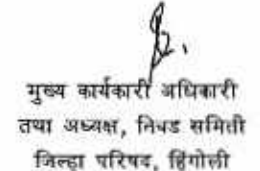 मुख्य कार्यकारी अधिकारी
तथा अध्यक्ष, निवड समिती
जिल्हा परिषद, हिंगोली